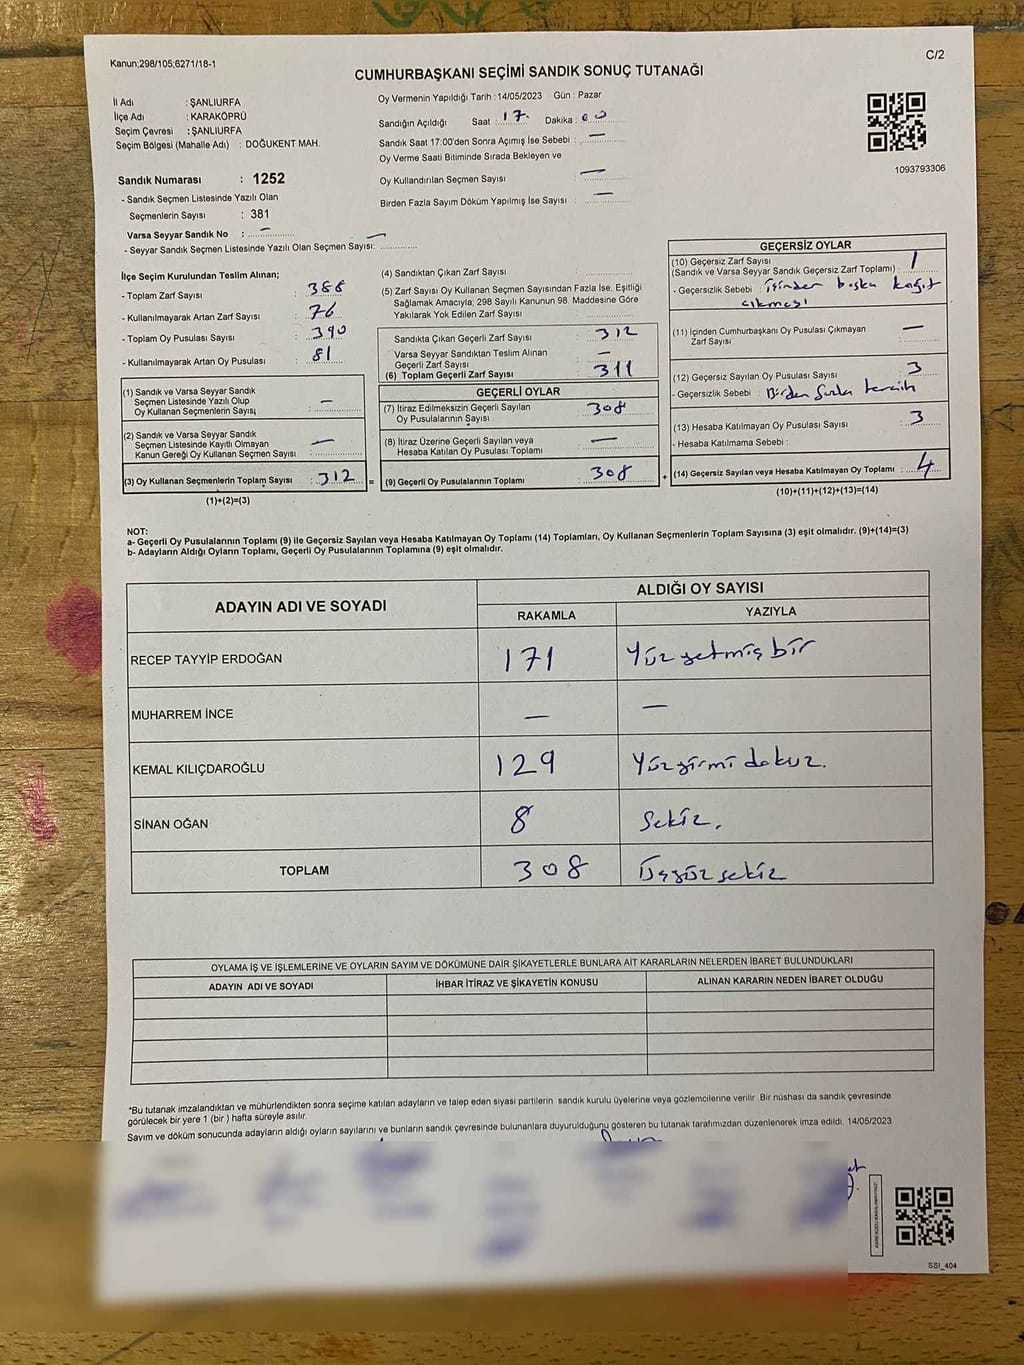 Kanun;298/105;6271/18-1
C/2
CUMHURBAŞKANI SEÇİMİ SANDIK SONUÇ TUTANAĞI
İl Adı : ŞANLIURFA
İlçe Adı : KARAKÖPRÜ
Seçim Çevresi : ŞANLIURFA
Seçim Bölgesi (Mahalle Adı) : DOĞUKENT MAH.
Sandık Numarası : 1252
- Sandık Seçmen Listesinde Yazılı Olan
Seçmenlerin Sayısı : 381
Varsa Seyyar Sandık No : —
- Seyyar Sandık Seçmen Listesinde Yazılı Olan Seçmen Sayısı: —
Oy Vermenin Yapıldığı Tarih :14/05/2023 Gün : Pazar
Sandığın Açıldığı Saat : 17. Dakika : 00
Sandık Saat 17:00'den Sonra Açımış İse Sebebi : —
Oy Verme Saati Bitiminde Sırada Bekleyen ve
Oy Kullandırılan Seçmen Sayısı : —
Birden Fazla Sayım Döküm Yapılmış İse Sayısı : —
1093793306
İlçe Seçim Kurulundan Teslim Alınan;
- Toplam Zarf Sayısı : 388
- Kullanılmayarak Artan Zarf Sayısı : 76
- Toplam Oy Pusulası Sayısı : 390
- Kullanılmayarak Artan Oy Pusulası : 81
(1) Sandık ve Varsa Seyyar Sandık
Seçmen Listesinde Yazılı Olup
Oy Kullanan Seçmenlerin Sayısı : —
(2) Sandık ve Varsa Seyyar Sandık
Seçmen Listesinde Kayıtlı Olmayan
Kanun Gereği Oy Kullanan Seçmen Sayısı : —
(3) Oy Kullanan Seçmenlerin Toplam Sayısı : 312
(1)+(2)=(3)
(4) Sandıktan Çıkan Zarf Sayısı :
(5) Zarf Sayısı Oy Kullanan Seçmen Sayısından Fazla İse. Eşitliği
Sağlamak Amacıyla; 298 Sayılı Kanunun 98. Maddesine Göre
Yakılarak Yok Edilen Zarf Sayısı :
Sandıkta Çıkan Geçerli Zarf Sayısı : 312
Varsa Seyyar Sandıktan Teslim Alınan
Geçerli Zarf Sayısı : —
(6) Toplam Geçerli Zarf Sayısı : 311
GEÇERLİ OYLAR
(7) İtiraz Edilmeksizin Geçerli Sayılan
Oy Pusulalarının Sayısı : 308
(8) İtiraz Üzerine Geçerli Sayılan veya
Hesaba Katılan Oy Pusulası Toplamı : —
= (9) Geçerli Oy Pusulalarının Toplamı : 308 +
GEÇERSİZ OYLAR
(10) Geçersiz Zarf Sayısı
(Sandık ve Varsa Seyyar Sandık Geçersiz Zarf Toplamı) : 1
- Geçersizlik Sebebi : İçinden başka kağıt
çıkması
(11) İçinden Cumhurbaşkanı Oy Pusulası Çıkmayan
Zarf Sayısı : —
(12) Geçersiz Sayılan Oy Pusulası Sayısı : 3
- Geçersizlik Sebebi : Birden fazla tercih
(13) Hesaba Katılmayan Oy Pusulası Sayısı : 3
- Hesaba Katılmama Sebebi :
(14) Geçersiz Sayılan veya Hesaba Katılmayan Oy Toplamı : 4
(10)+(11)+(12)+(13)=(14)
NOT:
a- Geçerli Oy Pusulalarının Toplamı (9) ile Geçersiz Sayılan veya Hesaba Katılmayan Oy Toplamı (14) Toplamları, Oy Kullanan Seçmenlerin Toplam Sayısına (3) eşit olmalıdır. (9)+(14)=(3)
b- Adayların Aldığı Oyların Toplamı, Geçerli Oy Pusulalarının Toplamına (9) eşit olmalıdır.
ADAYIN ADI VE SOYADI
ALDIĞI OY SAYISI
RAKAMLA YAZIYLA
RECEP TAYYİP ERDOĞAN 171 Yüz yetmiş bir
MUHARREM İNCE — —
KEMAL KILIÇDAROĞLU 129 Yüz yirmi dokuz.
SİNAN OĞAN 8 Sekiz.
TOPLAM 308 Üçyüz sekiz
OYLAMA İŞ VE İŞLEMLERİNE VE OYLARIN SAYIM VE DÖKÜMÜNE DAİR ŞİKAYETLERLE BUNLARA AİT KARARLARIN NELERDEN İBARET BULUNDUKLARI
ADAYIN ADI VE SOYADI İHBAR İTİRAZ VE ŞİKAYETİN KONUSU ALINAN KARARIN NEDEN İBARET OLDUĞU
*Bu tutanak imzalandıktan ve mühürlendikten sonra seçime katılan adayların ve talep eden siyasi partilerin sandık kurulu üyelerine veya gözlemcilerine verilir. Bir nüshası da sandık çevresinde
görülecek bir yere 1 (bir ) hafta süreyle asılır.
Sayım ve döküm sonucunda adayların aldığı oyların sayılarını ve bunların sandık çevresinde bulunanlara duyurulduğunu gösteren bu tutanak tarafımızdan düzenlenerek imza edildi. 14/05/2023
SSI_404